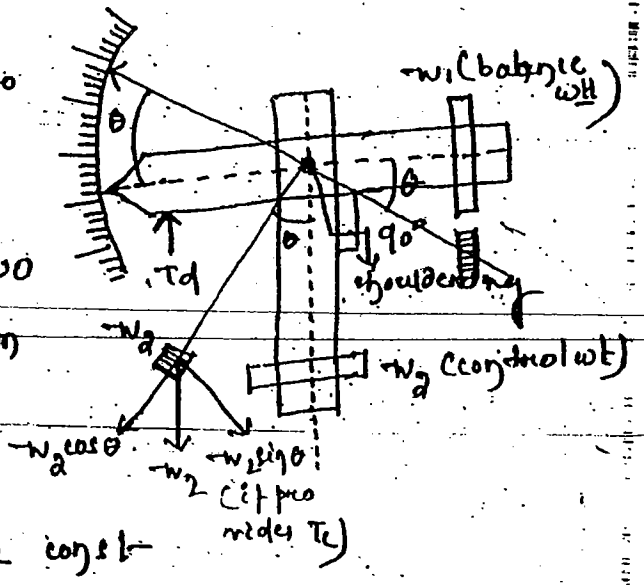 w₁ (balance
wt)
θ
θ
θ
90°
Td
shouldering
w₂
w₂ (control wt)
w₂cosθ
w₂
w₂sinθ
(it pro
vides Tc)
const